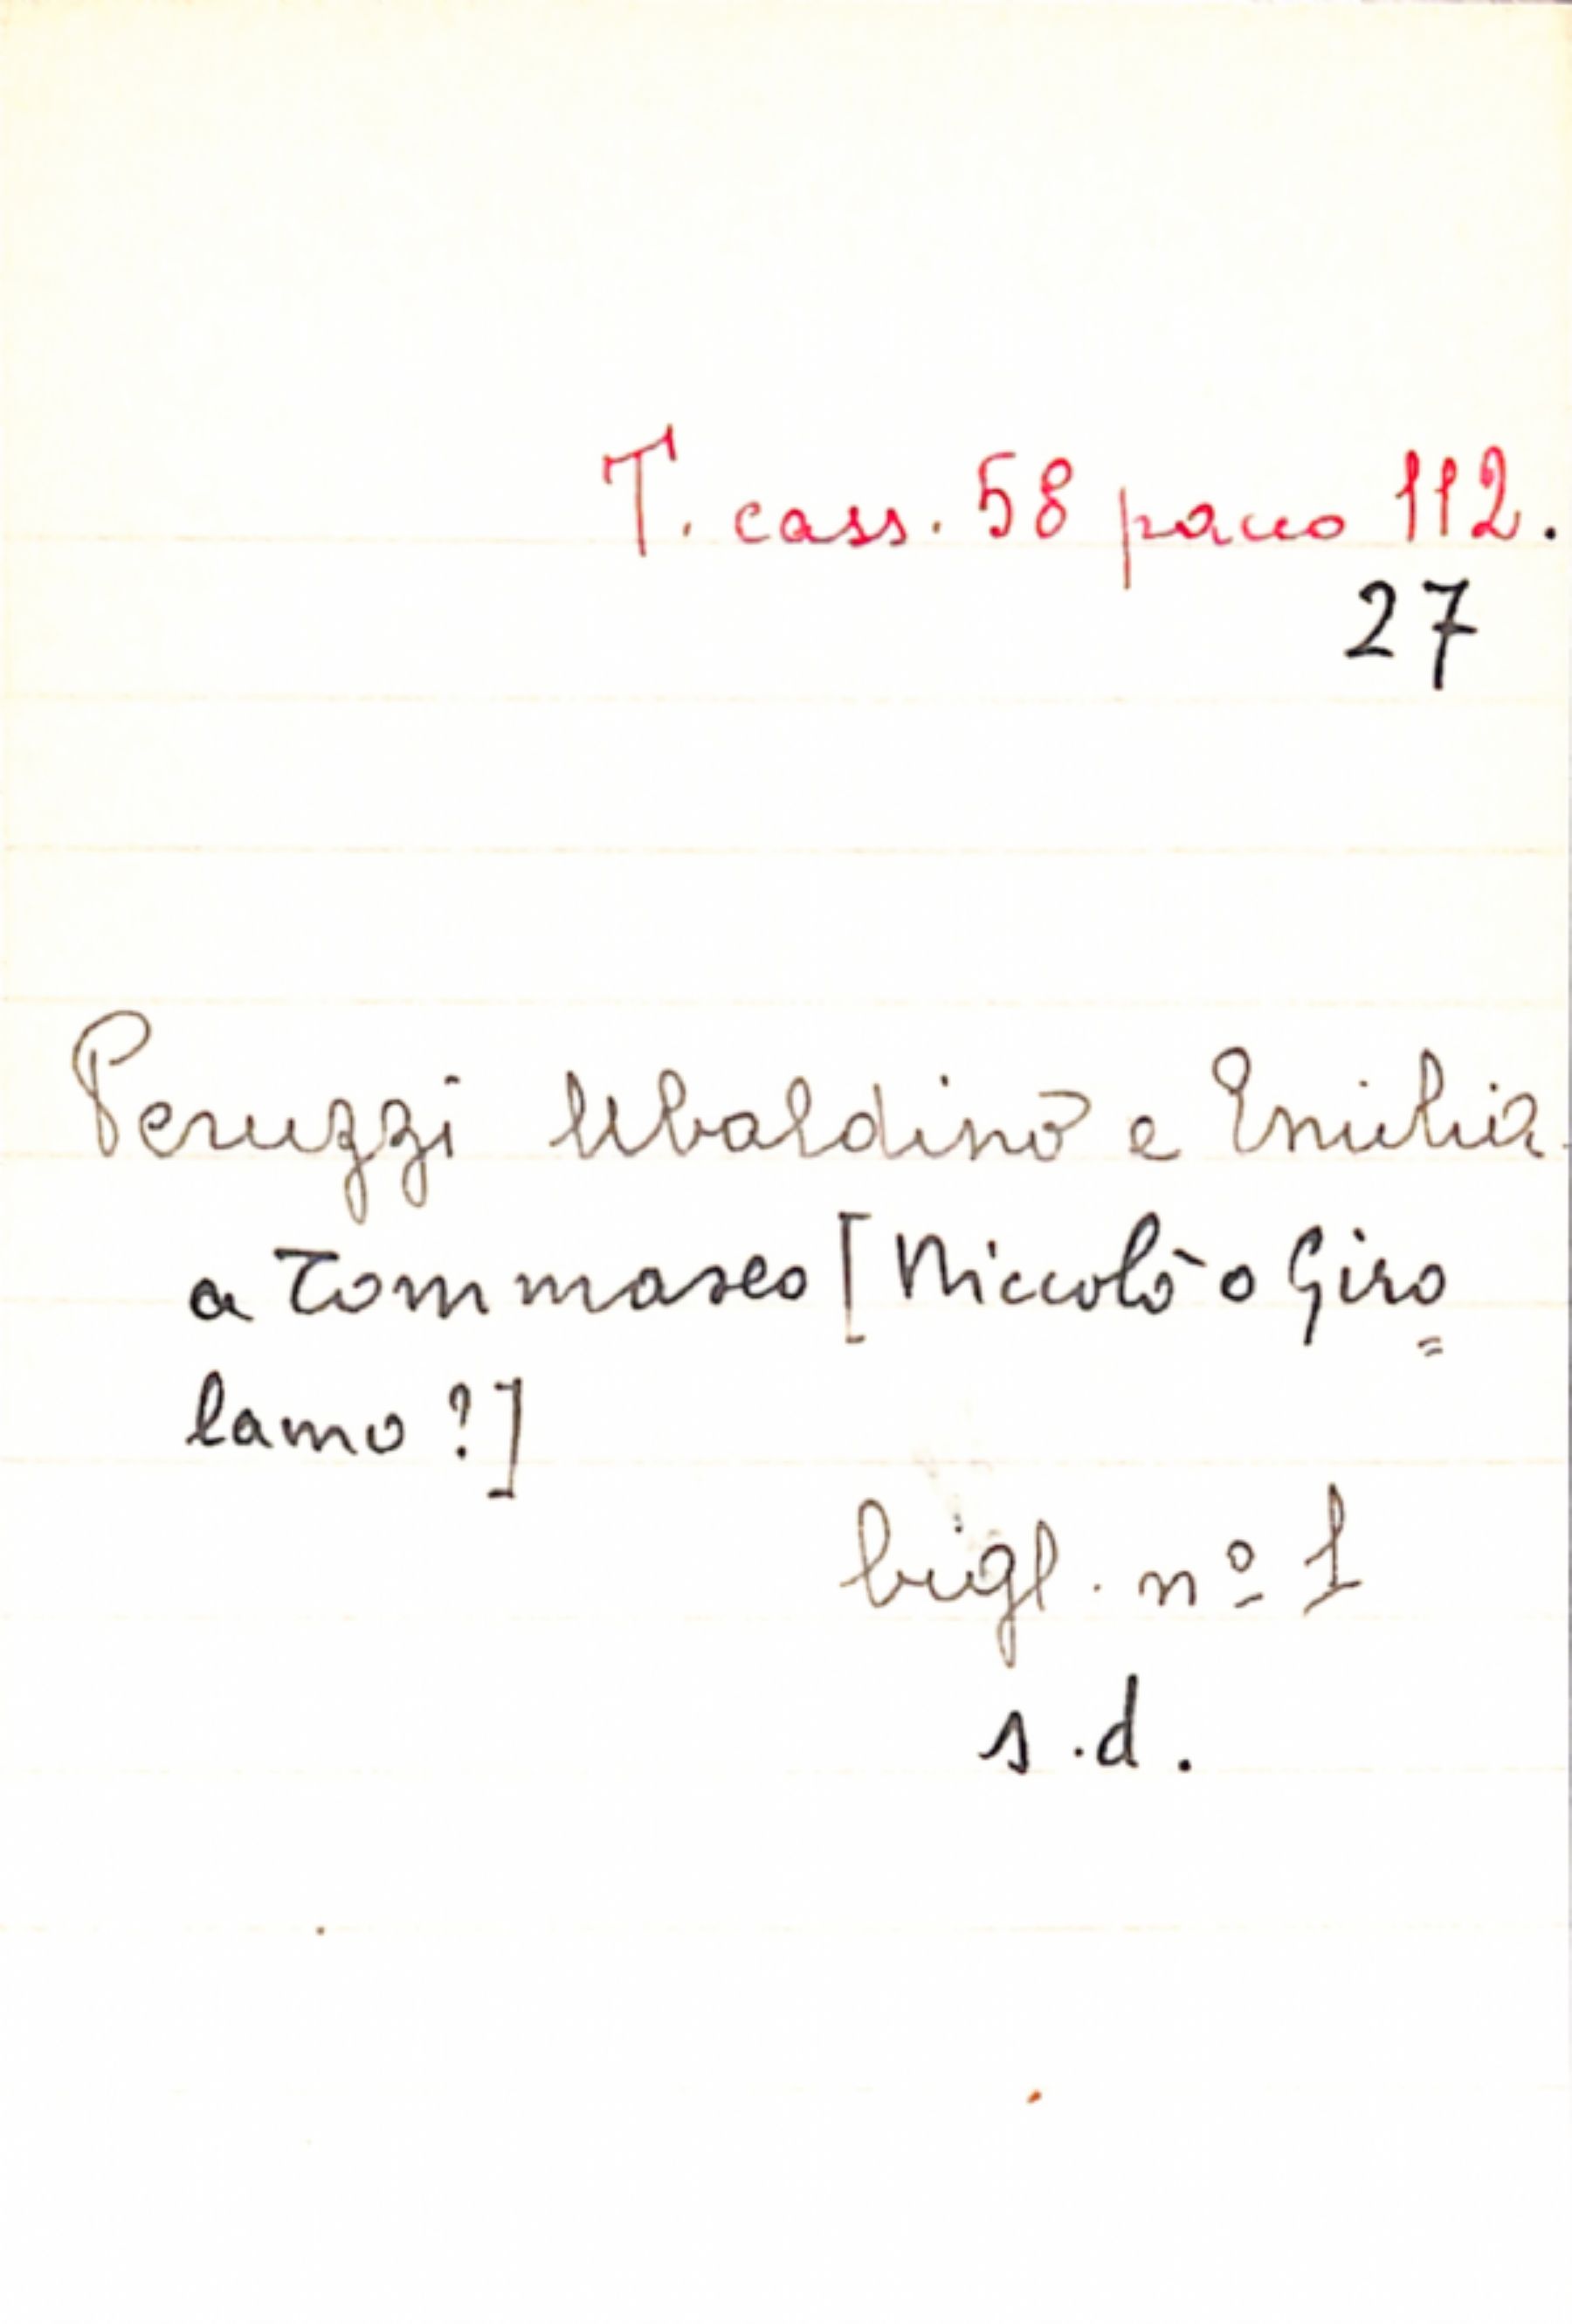 T. cass. 58 pacco 112.
27
Peruzzi Ubaldino e Emilia
a Tommaseo [Niccolò o Giro
=
lamo ?]
bigl. nº 1
s.d.